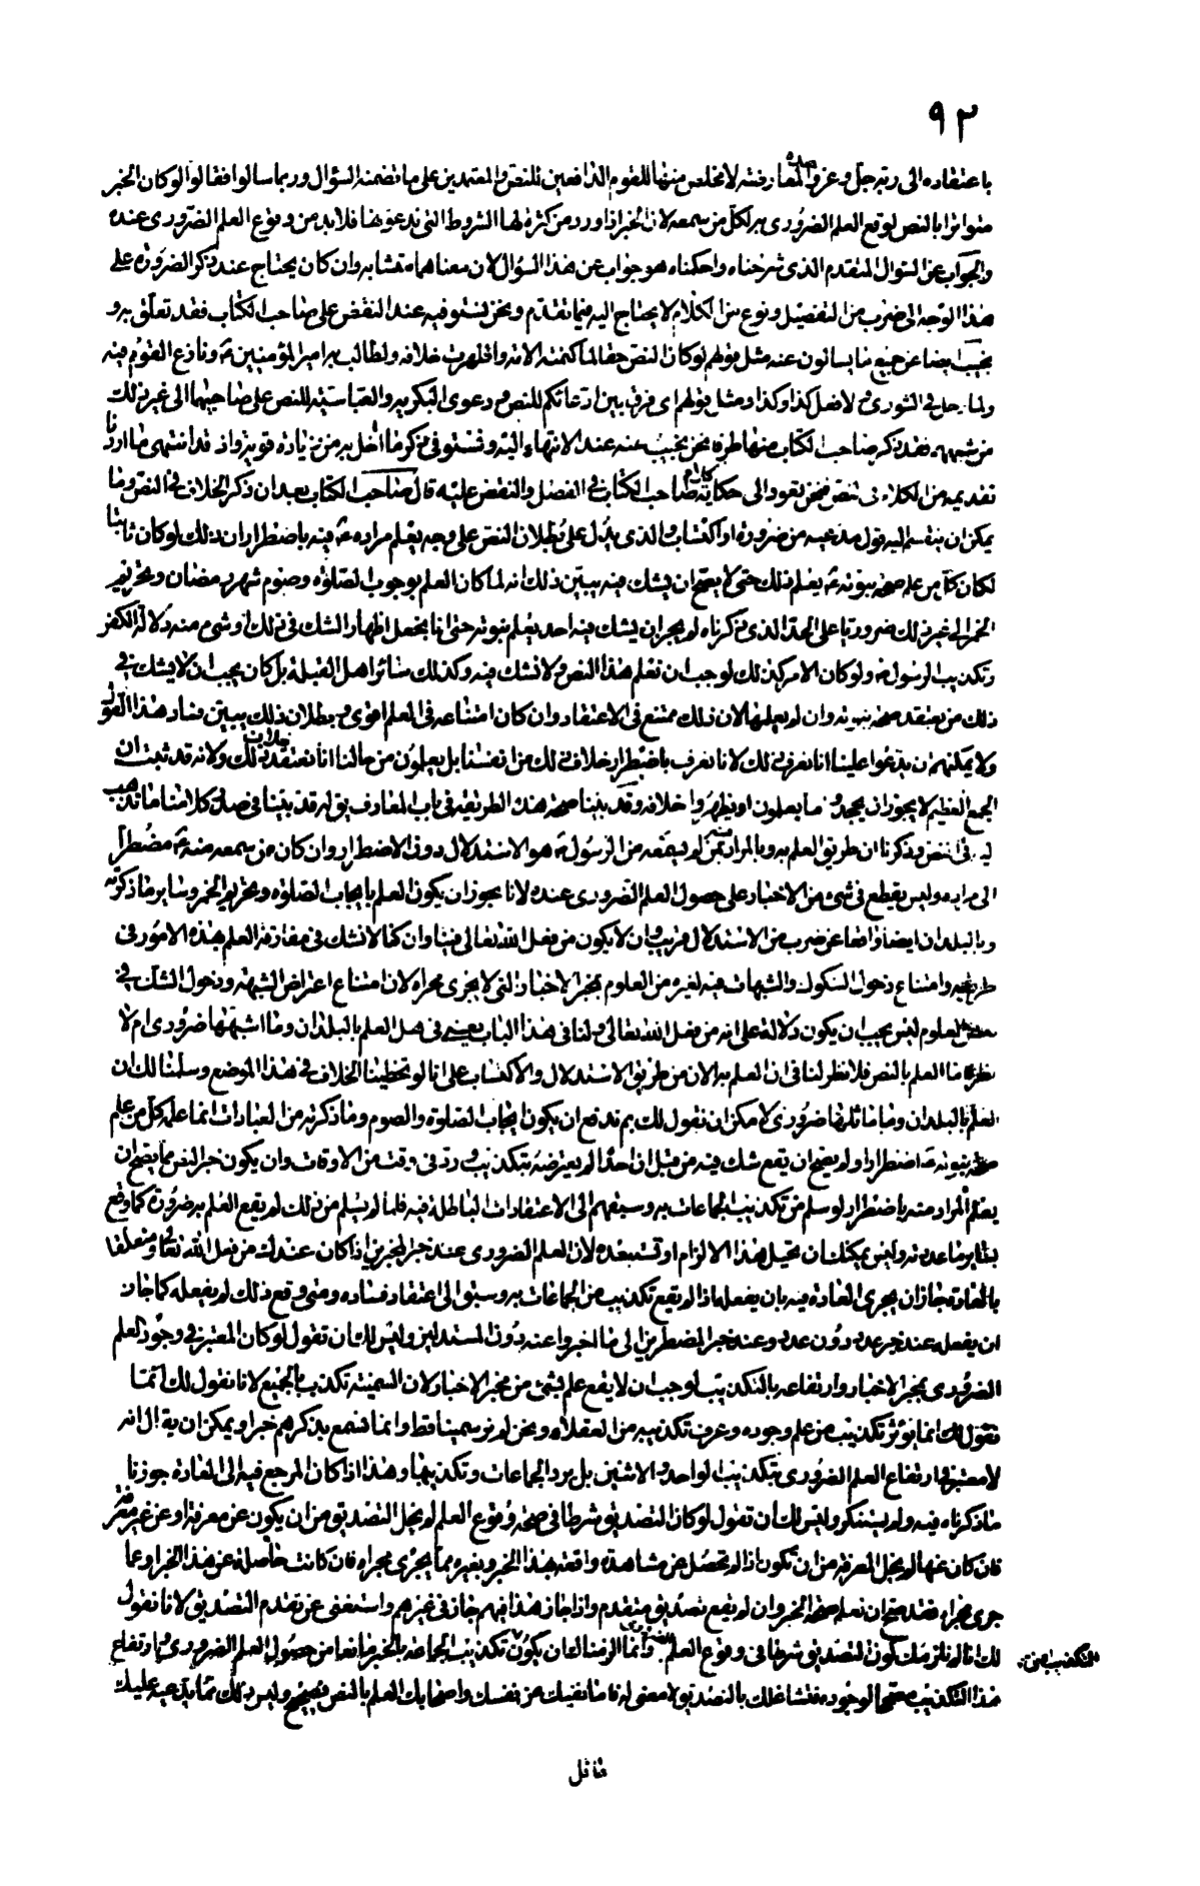 ٩٢
باعتقاده الى ربه جل وعز و المعارضة لا مخلص منها للقوم الدافعين للنص والمعتمدين على ما تضمنه السؤال وربما سالوا فقالوا لو كان الخبر
متواترا بالنص لوقع العلم الضرورى به لكل من سمعه لان الخبر اذا ورد من كثرة لها الشروط التى تدعونها فلابد من وقوع العلم الضرورى عنده
والجواب عن السؤال المتقدم الذى شرحناه واحكمناه هو جواب عن هذا السؤال لان معناهما متشابه وان كان يحتاج عند ذكر الضرورة على
هذا الوجه الى ضرب من التفصيل ونوع من الكلام لا يحتاج اليه فيما تقدم ونحن نستوفيه عند النقض على صاحب الكتاب فقد تعلق به و
نجيب ايضا عن جميع ما يسالون عنه مثل قولهم لو كان النص حقا لما كتمته الامة واظهرت خلافه ولطالب به امير المؤمنين ع ونازع القوم فيه
ولما دخل فى الشورى و لا فعل كذا وكذا ومثل قولهم اى فرق بين ادعائكم للنص و دعوى البكرية والعباسية للنص على صاحبيهما الى غير ذلك
من شبههم فقد ذكر صاحب الكتاب منها طرفا نحن نجيب عنه عند الانتهاء اليه ونستوفى ذكر ما اخل به من زيادة قوية واذ قد انتهى ما اردنا
تقديمه من الكلام فى النص فنحن نعود الى حكاية كلام صاحب الكتاب فى الفصل والنقض عليه قال صاحب الكتاب بعد ان ذكر الخلاف فى النص وما
يمكن ان ينقسم اليه قول مدعيه من ضرورة او اكتساب والذى يدل على بطلان النص على وجه يعلم مراده ع فيه باضطرار ان ذلك لو كان ثابتا
لكان كل من علم صحة نبوته ع يعلم ذلك حتى لا يصح ان يشك فيه يبين ذلك انه لما كان العلم بوجوب الصلوة وصوم شهر رمضان وتحريم
الخمر الى غير ذلك ضروريا على الحد الذى ذكرناه لم يجز ان يشك فيه احد يعلم نبوته حتى انا نجعل اظهار الشك فى ذلك او شىء منه دلالة الكفر
وتكذيب الرسول ع ولو كان الامر كذلك لوجب ان نعلم هذا النص و لا نشك فيه وكذلك سائر اهل القبلة بل كان يجب ان لا يشك فى
ذلك من يعتقد صحة نبوته وان لم يعلمها لان ذلك ممتنع فى الاعتقاد وان كان امتناعه فى العلم اقوى و بطلان ذلك يبين فساد هذا القول
ولا يمكنهم ان يدعوا علينا انا نعرف ذلك لانا نعرف باضطرار خلاف ذلك من انفسنا بل يعلمون من حالنا انا نعتقد خلاف ذلك ولانه قد ثبت ان
الجمع العظيم لا يجوز ان يجحدوا ما يعلمون او يظهروا خلافه وقد بينا صحة هذه الطريقة فى باب المعارف يق له قد بينا فى صدر كلامنا ما نذهب
اليه فى النص وذكرنا ان طريق العلم به وبالمراد منه لمن لم يسمعه من الرسول ص هو الاستدلال دون الاضطرار وان كان من سمعه منه ص مضطرا
الى مراده وليس يقطع فى شىء من الاخبار على حصول العلم الضرورى عنده لانا نجوز ان يكون العلم بايجاب الصلوة وتحريم الخمر وسائر ما ذكرته
وبالبلدان ايضا واقعا عن ضرب من الاستدلال قريب وان لا يكون من فعل الله تعالى فينا وان كنا لا نشك فى مفارقة العلم بهذه الامور فى
طريقه وامتناع دخول الشكوك والشبهات فيه لغيره من العلوم بمخبر الاخبار التى لا يجرى مجراه لان امتناع اعتراض الشبهة ودخول الشك فى
بعض العلوم ليس يجب ان يكون دلالة على انه من فعل الله تعالى ولنا فى هذا الباب بعينه فى هل العلم بالبلدان وما اشبهها ضرورى ام لا
نظر فاما العلم بالنص فلا نظر لنا فى ان العلم به الان من طريق الاستدلال والاكتساب على انا لو تخطينا الخلاف فى هذا الموضع وسلمنا لك ان
العلم بالبلدان وما ماثلها ضرورى لامكن ان نقول لك بم تدفع ان يكون ايجاب الصلوة والصوم وما ذكرته من العبادات انما علمه كل من علم
صحة نبوته ع اضطرارا ولم يصح ان يقع شك فيه من قبل ان احدا لم يعترضه بتكذيب و رد فى وقت من الاوقات وان يكون خبر النص مما يصح ان
يعلم المراد منه باضطرار لو سلم من تكذيب الجماعات به وسبقهم الى الاعتقادات الباطلة فيه فلما لم يسلم من ذلك لم يقع العلم به ضرورة كما وقع
بسائر ما عددته وليس يمكنك ان تحيل هذا الالزام او تستبعده لان العلم الضرورى عند خبر المخبرين اذا كان عندك من فعل الله تعالى ومتعلقا
بالعادة جاز ان يجرى العادة فيه بان يفعله اذا لم يقع تكذيب من الجماعات به وسبق الى اعتقاد فساده ومتى وقع ذلك لم يفعله كما جاز
ان يفعله عند خبر عدد دون عدد وعند خبر المضطرين الى ما اخبروا عنه دون المستدلين وليس لك ان تقول لو كان المعتبر فى وجود العلم
الضرورى بمخبر الاخبار وارتفاعه بالتكذيب لوجب ان لا يقع علم بشىء من مخبر الاخبار لان السمنية تكذب بالجميع لانا نقول لك انما
نقول لك انما يؤثر تكذيب من علم وجوده وعرف تكذيبه من العقلاء ونحن لم نر سمنيا قط وانما نسمع بذكرهم خبرا ويمكن ان يقال انه
لا معتبر فى ارتفاع العلم الضرورى بتكذيب الواحد و الاثنين بل برد الجماعات وتكذيبها وهذا اذا كان المرجع فيه الى العادة جوزنا
ما ذكرناه فيه ولم يستنكر وليس لك ان تقول لو كان التصديق شرطا فى صحة وقوع العلم لم يخل التصديق من ان يكون عن معرفة او عن غير معرفة
فان كان عنها لم يخل المعرفة من ان تكون اذا لم تحصل عن مشاهدة واقعة بهذا الخبر و بغيره مما يجرى مجراه فان كانت حاصلة عن هذا الخبر او عما
جرى مجراه فقد صح ان نعلم صحة الخبر وان لم يقع تصديق متقدم واذا جاز هذا فيهم جاز فى غيرهم واستغنى عن تقدم التصديق لانا نقول
لك انا لم نلزمك كون التصديق شرطا فى وقوع العلم وانما الزمناك ان يكون تكذيب الجماعة بالخبر مانعا من حصول العلم الضرورى و ارتفاع
هذا التكذيب مصححا لوجوده فتشاغلك بالتصديق لا معنى له فاما نفيك عن نفسك واصحابك العلم بالنص فصحيح وليس ذلك مما يدعيه عليك
عاقل